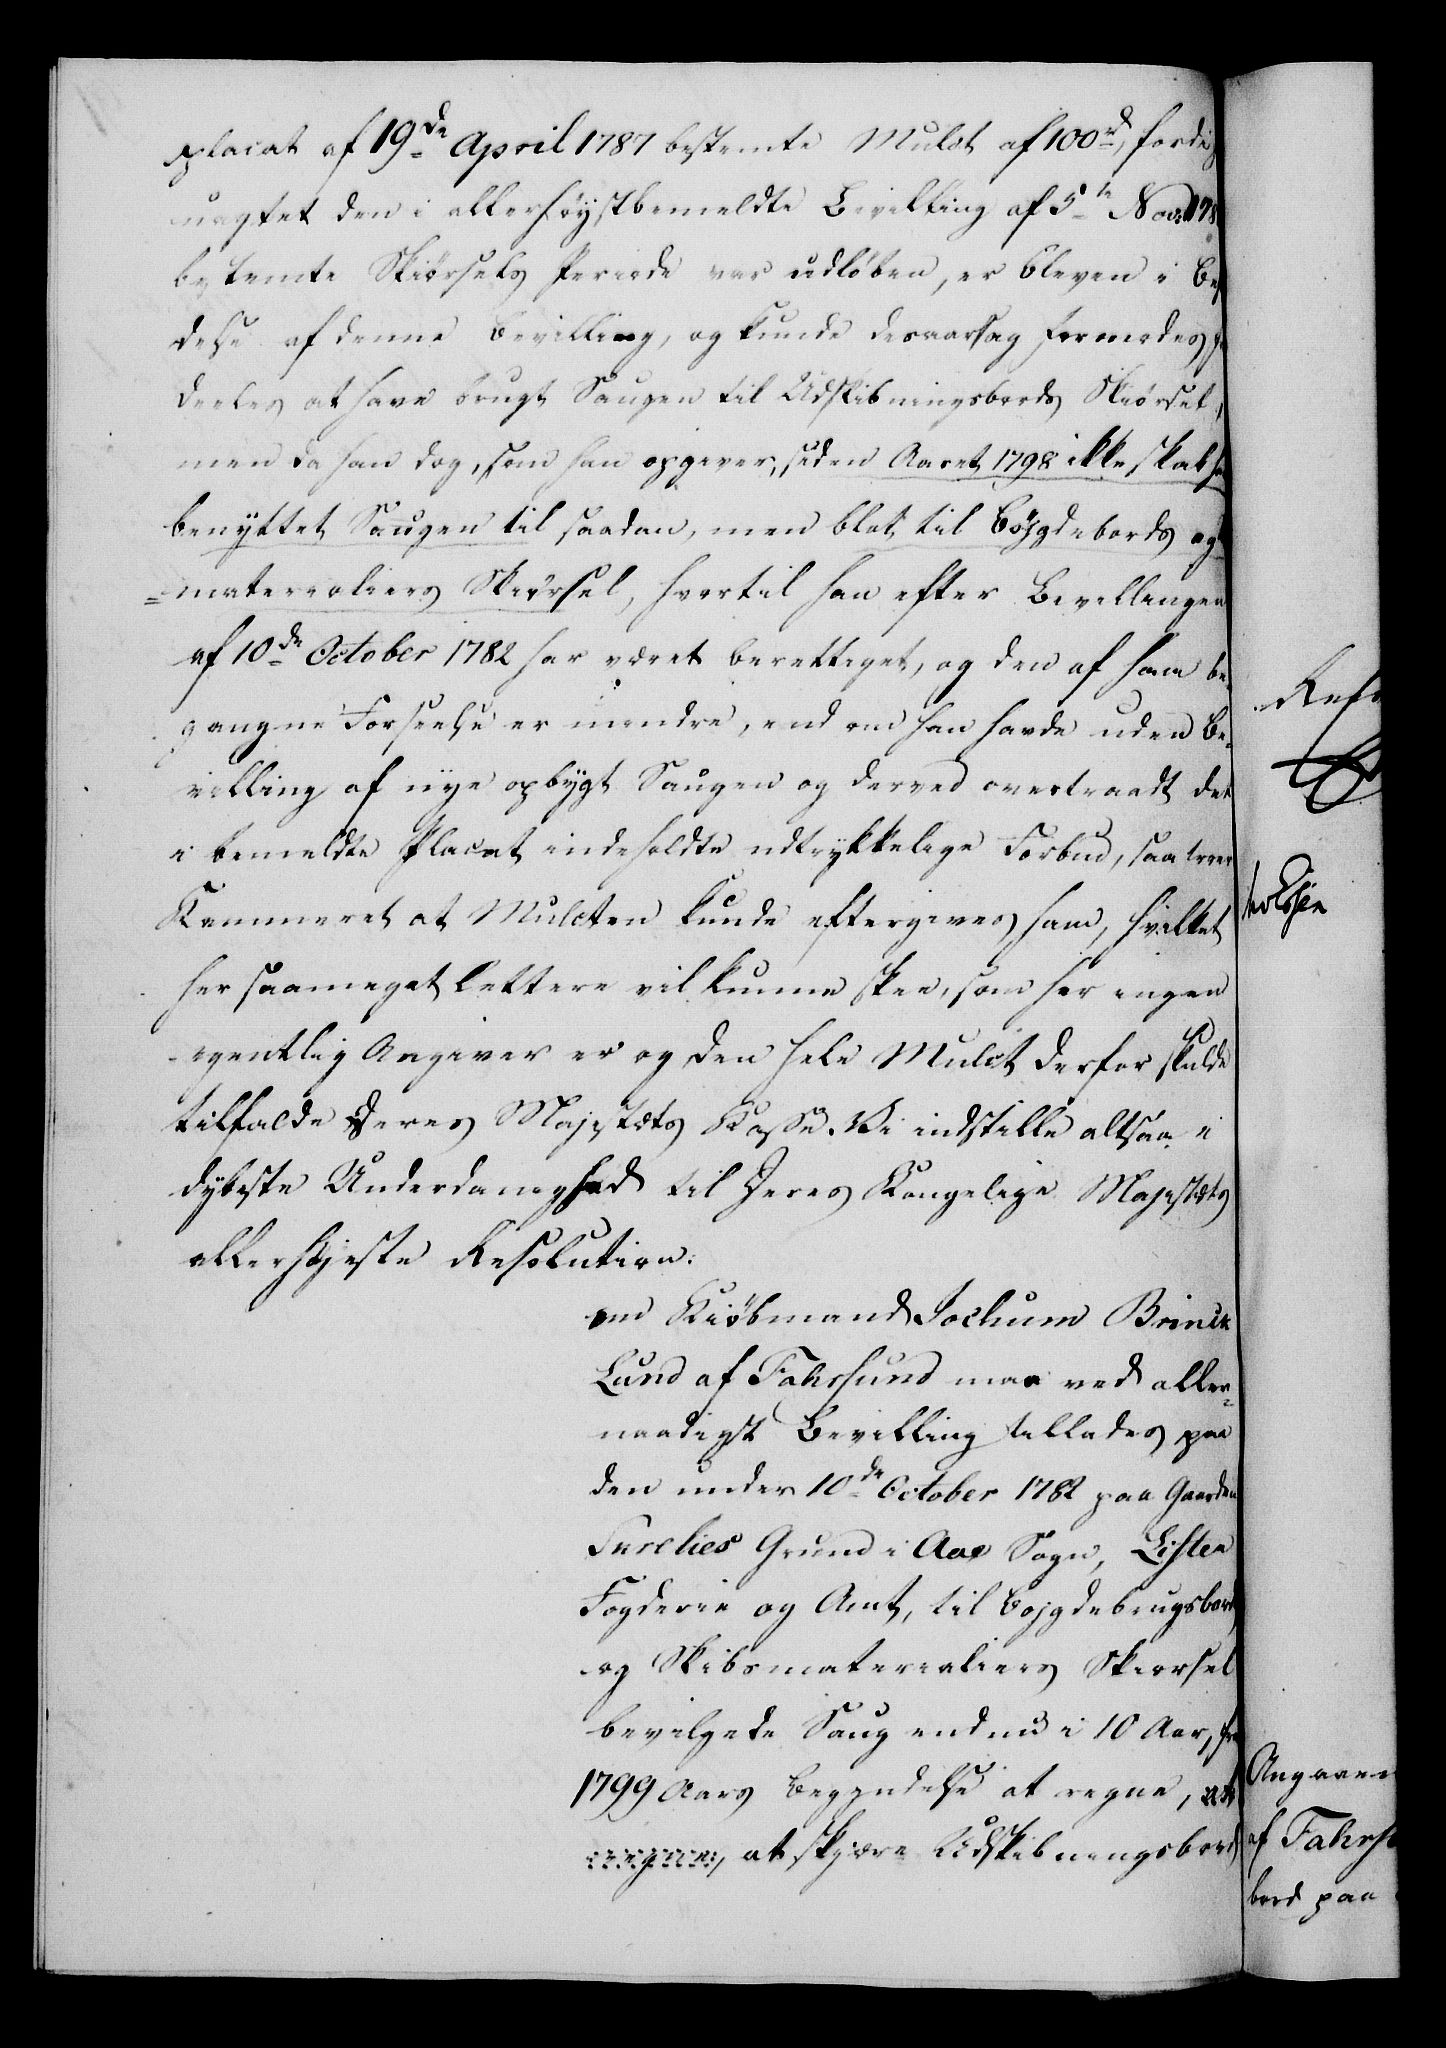 placat af 19de April 1787 bestemte Mulct af 100rd, fordi
uagtet den i allerhøystbemeldte Bevilling af 5te Nov: 178
bestemte Skiørsels Periode var udløben, er bleven i Be
delse af denne Bevilling, og kunde desaarsag formodes
deeles at have brugt Saugen til Udskibningsbords Skiørsel,
men da han dog, som han opgiver, siden Aaret 1798 ikke skal ha
benyttet Saugen til saadan, men blot til Bøygdebords og
=materialiers Skiørsel, hvortil han efter Bevillingen
af 10de October 1782 har været berettiget, og den af ham be-
gangne Forseelse er mindre, end om han havde uden Be-
villing af nye opbygt Saugen og derved overtraadt det
i bemeldte Placat indeholdte udtrykkelige Forbud, saa troer
Kammeret at Mulcten kunde eftergives ham, hvilket
her saameget lettere vil kunne skee, som her ingen
egentlig Angiver er og den hele Mulct derfor skulde
tilfalde Deres Majestæts Kasse. Vi indstille altsaa i
dybeste Underdanighed til Deres Kongelige Majestæts
allerhøjeste Resolution:
om Kiöbmand Jochum Brinck
Lund af Fahrsund maa ved aller-
naadigst Bevilling tillades paa
den under 10de October 1782 paa Gaarden
Furelies Grund i Aae Sogn, Lister
Fogderie og Amt, til Bojgdebrugsbord
og Skibsmaterialiers Skiorsel
bevilgede Saug endnu i 10 Aar, fra
1799 Aars Begyndelse at regne,
at skjære Udskibningsbord
Angaaen
af Fahrs
bord paa